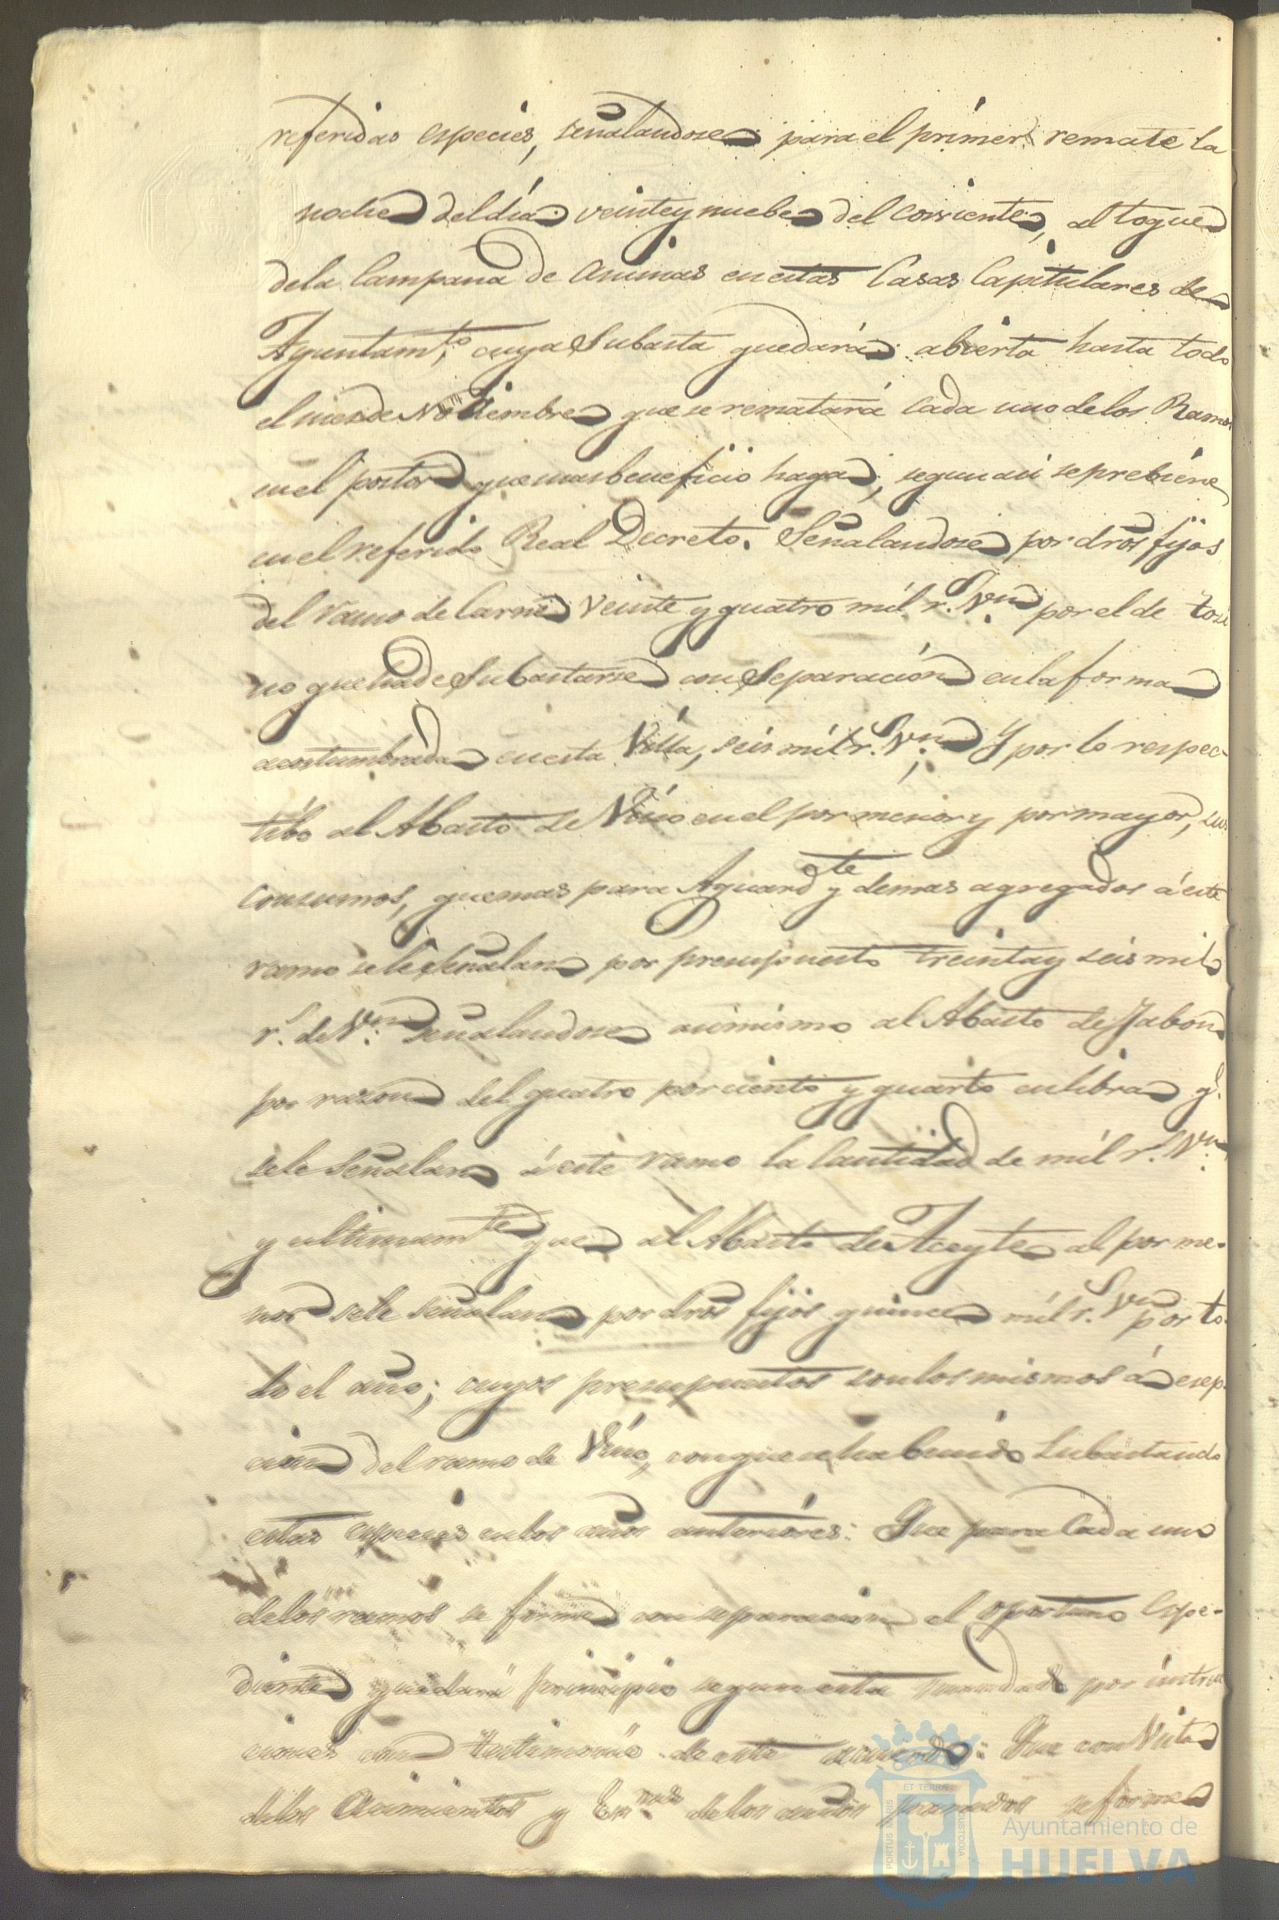 referidas especies, señalandose para el primer remate la
noche del dia veinte y nuebe del corriente, al toque
de la Campana de Animas en estas Casas Capitulares de
Ayuntam.to, cuya Subasta quedará abierta hasta todo
el mes de Noviembre que se rematará cada uno de los Ramos
en el postor que mas beneficio haga, segun asi se prebiene
en el referido Real Decreto. Señalandose por dros fijos
del ramo de Carne veinte y quatro mil r.s V.n por el de toci
no que ha de Subastarse con Separacion en la forma
acostumbrada en esta Villa, seis mil r.s V.n Y por lo respec-
tibo al Abasto de Vino en el por menor y por mayor, sus
consumos, quemas para Aguard.te y demas agregados á este
ramo se le señalan por presupuesto treinta y seis mil
r.s de V.n Señalandose asimismo al Abasto de Jabon
por razon del quatro por ciento y quarto en libra q.e
se le señalan á este ramo la Cantidad de mil r.s V.n
y ultimam.te que al Abasto de Aceyte al por me-
nor se le señalan por dros fijos quince mil r.s V.n por to-
do el año; cuyos presupuestos son los mismos á esep-
cion del ramo de Vino, con que se ha benido Subastando
estas especies en los años anteriores: Que para Cada uno
de los ramos se forme con separacion el oportuno Espe-
diente que dará principio segun está mandado por instruc
ciones con testimonio de este acuerdo: Que con Vista
de los Asimientos y de los años pasados se forme
Ayuntamiento de
HUELVA